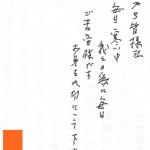 皆様
毎日寒い中
我々の為に毎日
ご苦労様です
お身体大切にして下